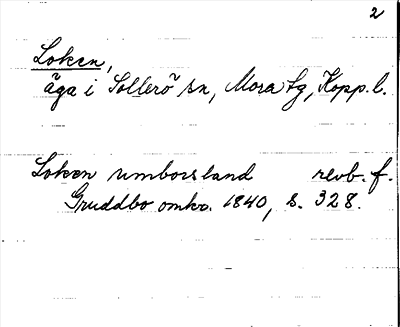 2
Loken,
äga i Sollerö sn, Mora tg, Kopp. l.
Loken umborsland revb. f.
Gruddbo omkr. 1840, s. 328.